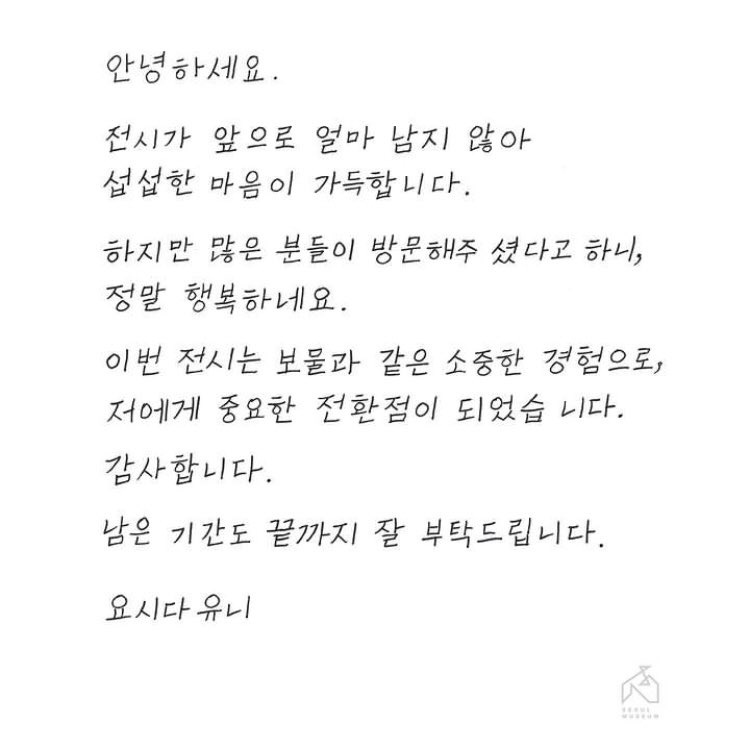 안녕하세요.
전시가 앞으로 얼마 남지 않아
섭섭한 마음이 가득합니다.
하지만 많은 분들이 방문해주 셨다고 하니,
정말 행복하네요.
이번 전시는 보물과 같은 소중한 경험으로,
저에게 중요한 전환점이 되었습 니다.
감사합니다.
남은 기간도 끝까지 잘 부탁드립니다.
요시다 유니
SEOUL
MUSEUM